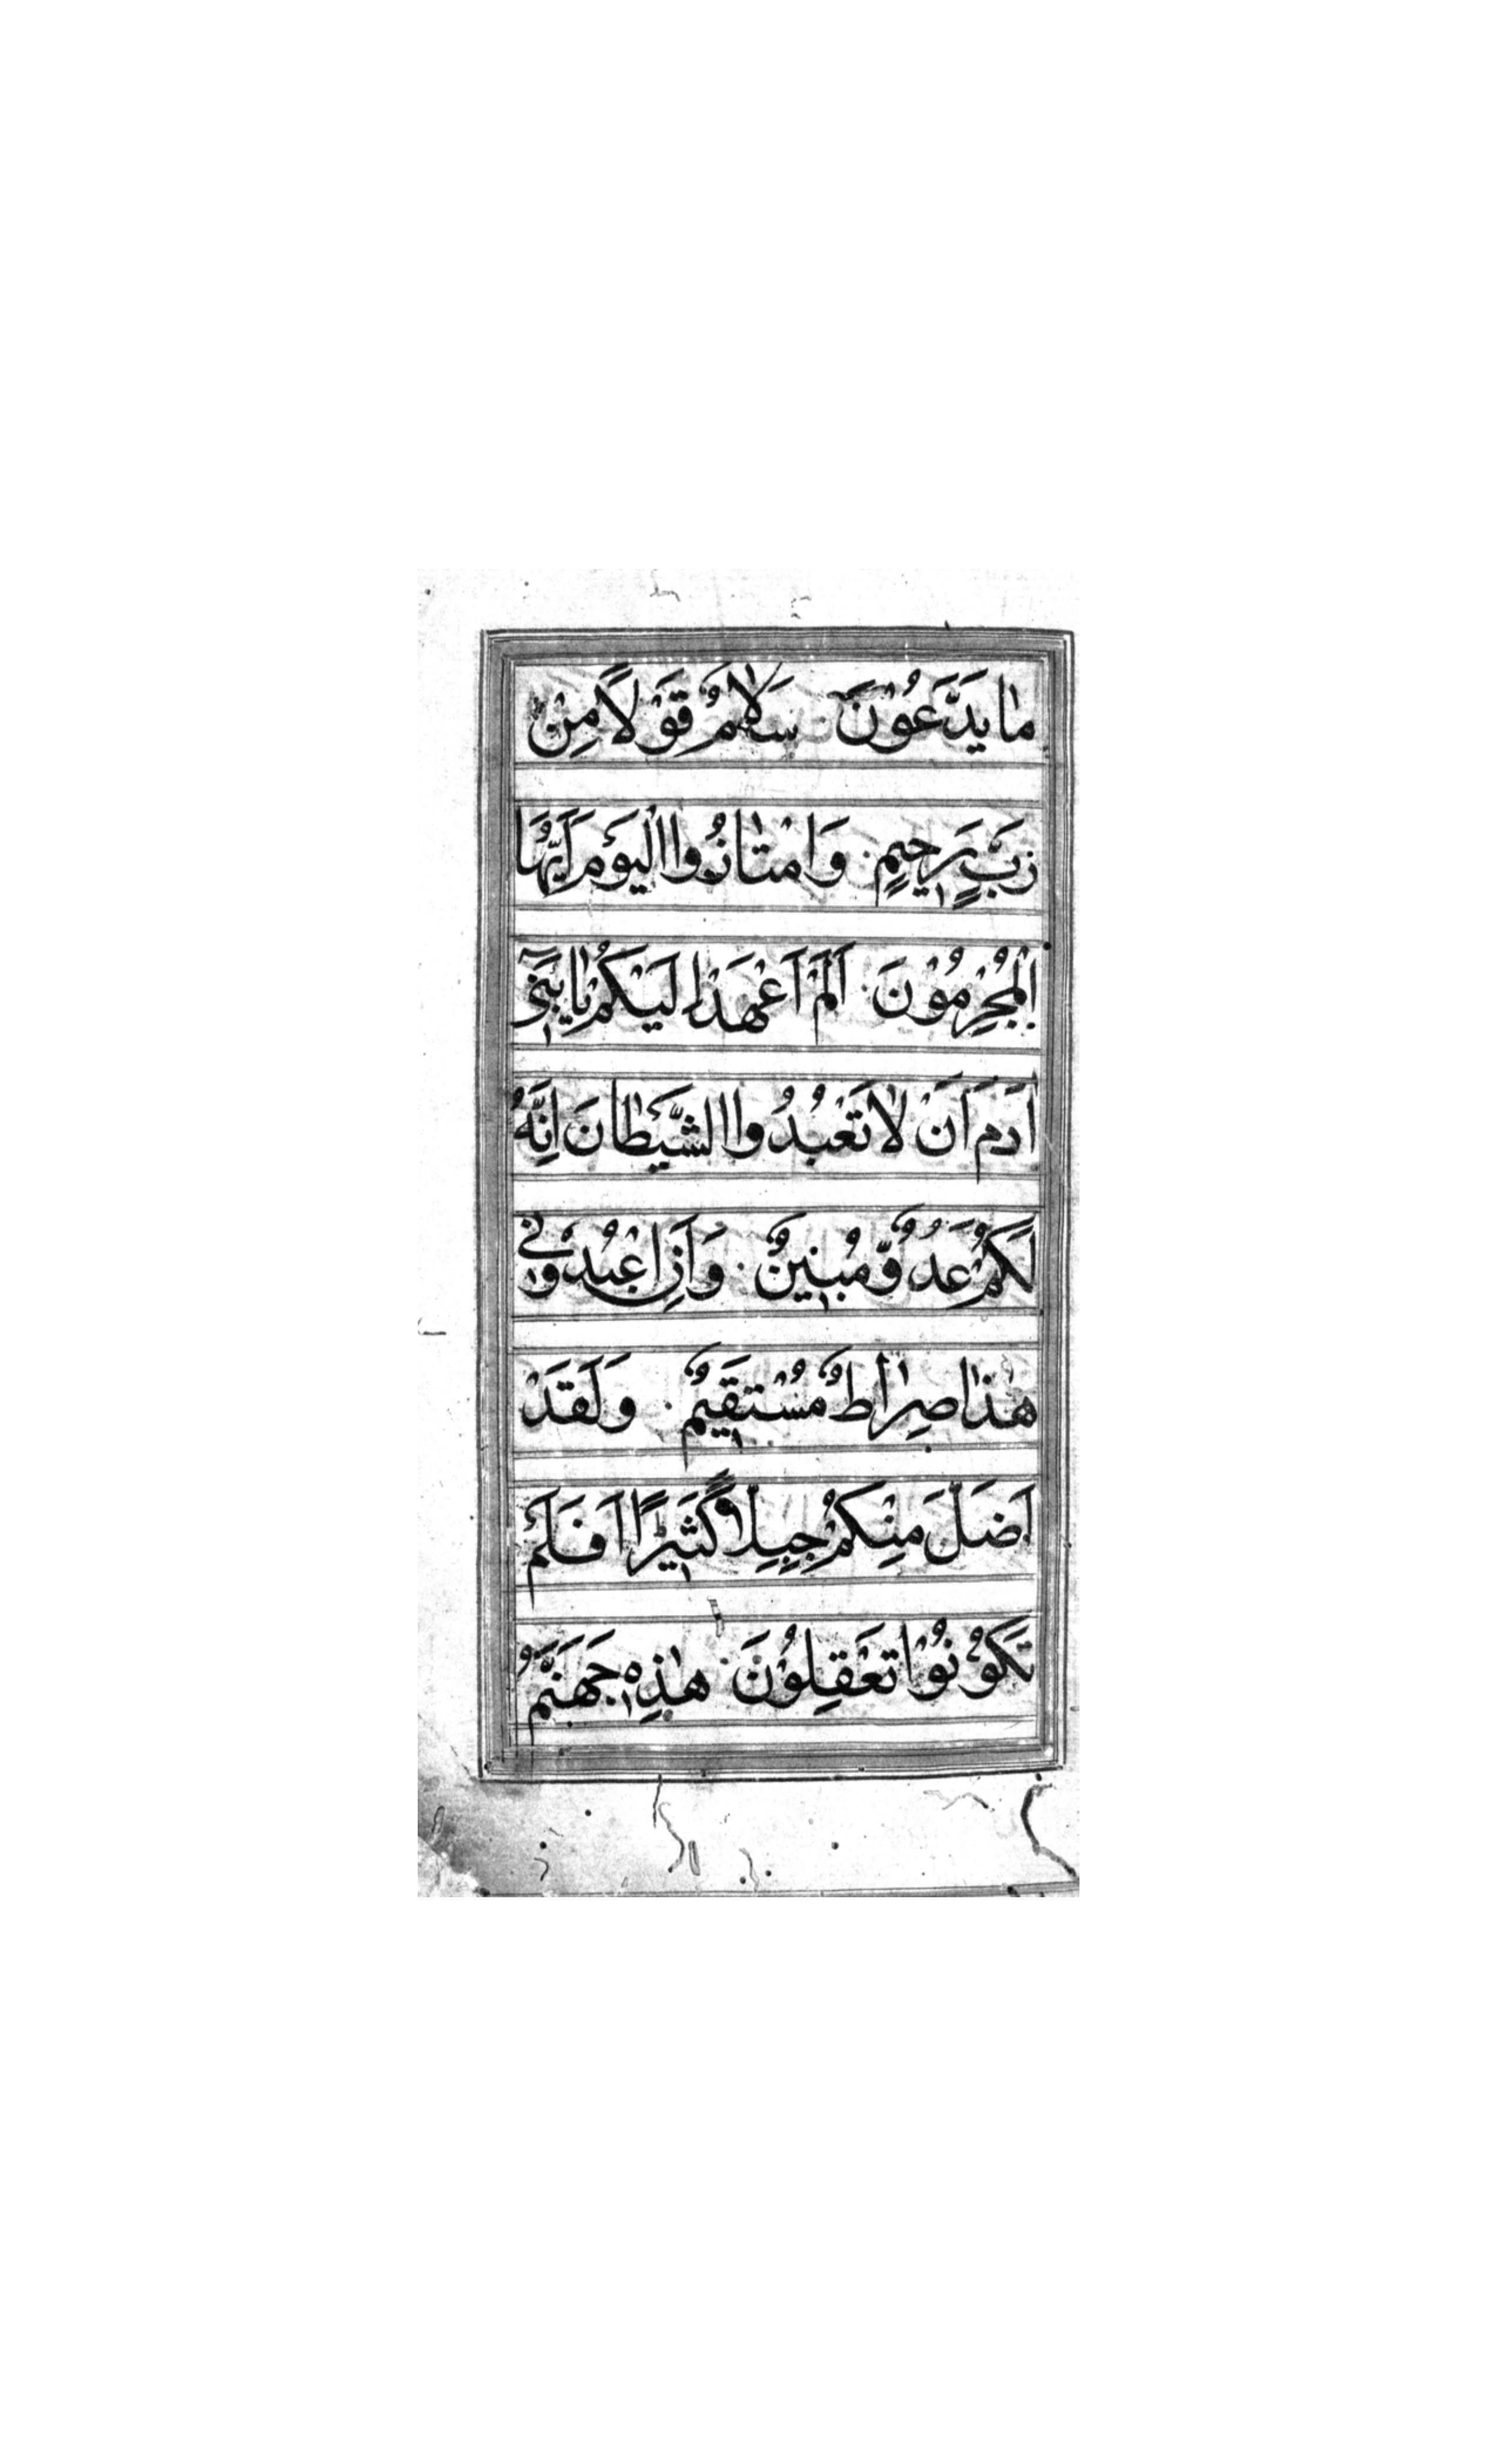 مٰا يَدَّعُوْنَ سَلٰامٌ قَوْلًا مِنْ
رَبٍّ رَحيمٍ وَامْتٰازُوا الْيَوْمَ اَيُّهَا
الْمُجْرِمُوْنَ اَلَمْ اَعْهَدْ اِلَيْكُمْ يٰا بَنى
اٰدَمَ اَنْ لٰا تَعْبُدُوا الشَّيْطٰانَ اِنَّهُ
لَكُمْ عَدُوٌّ مُبينٌ وَاَنِ اعْبُدُوْنى
هٰذٰا صِرٰاطٌ مُسْتَقيمٌ وَلَقَدْ
اَضَلَّ مِنْكُمْ جِبِلًّا كَثيرًا اَفَلَمْ
تَكُوْنُوْا تَعْقِلُوْنَ هٰذِهٖ جَهَنَّمُ